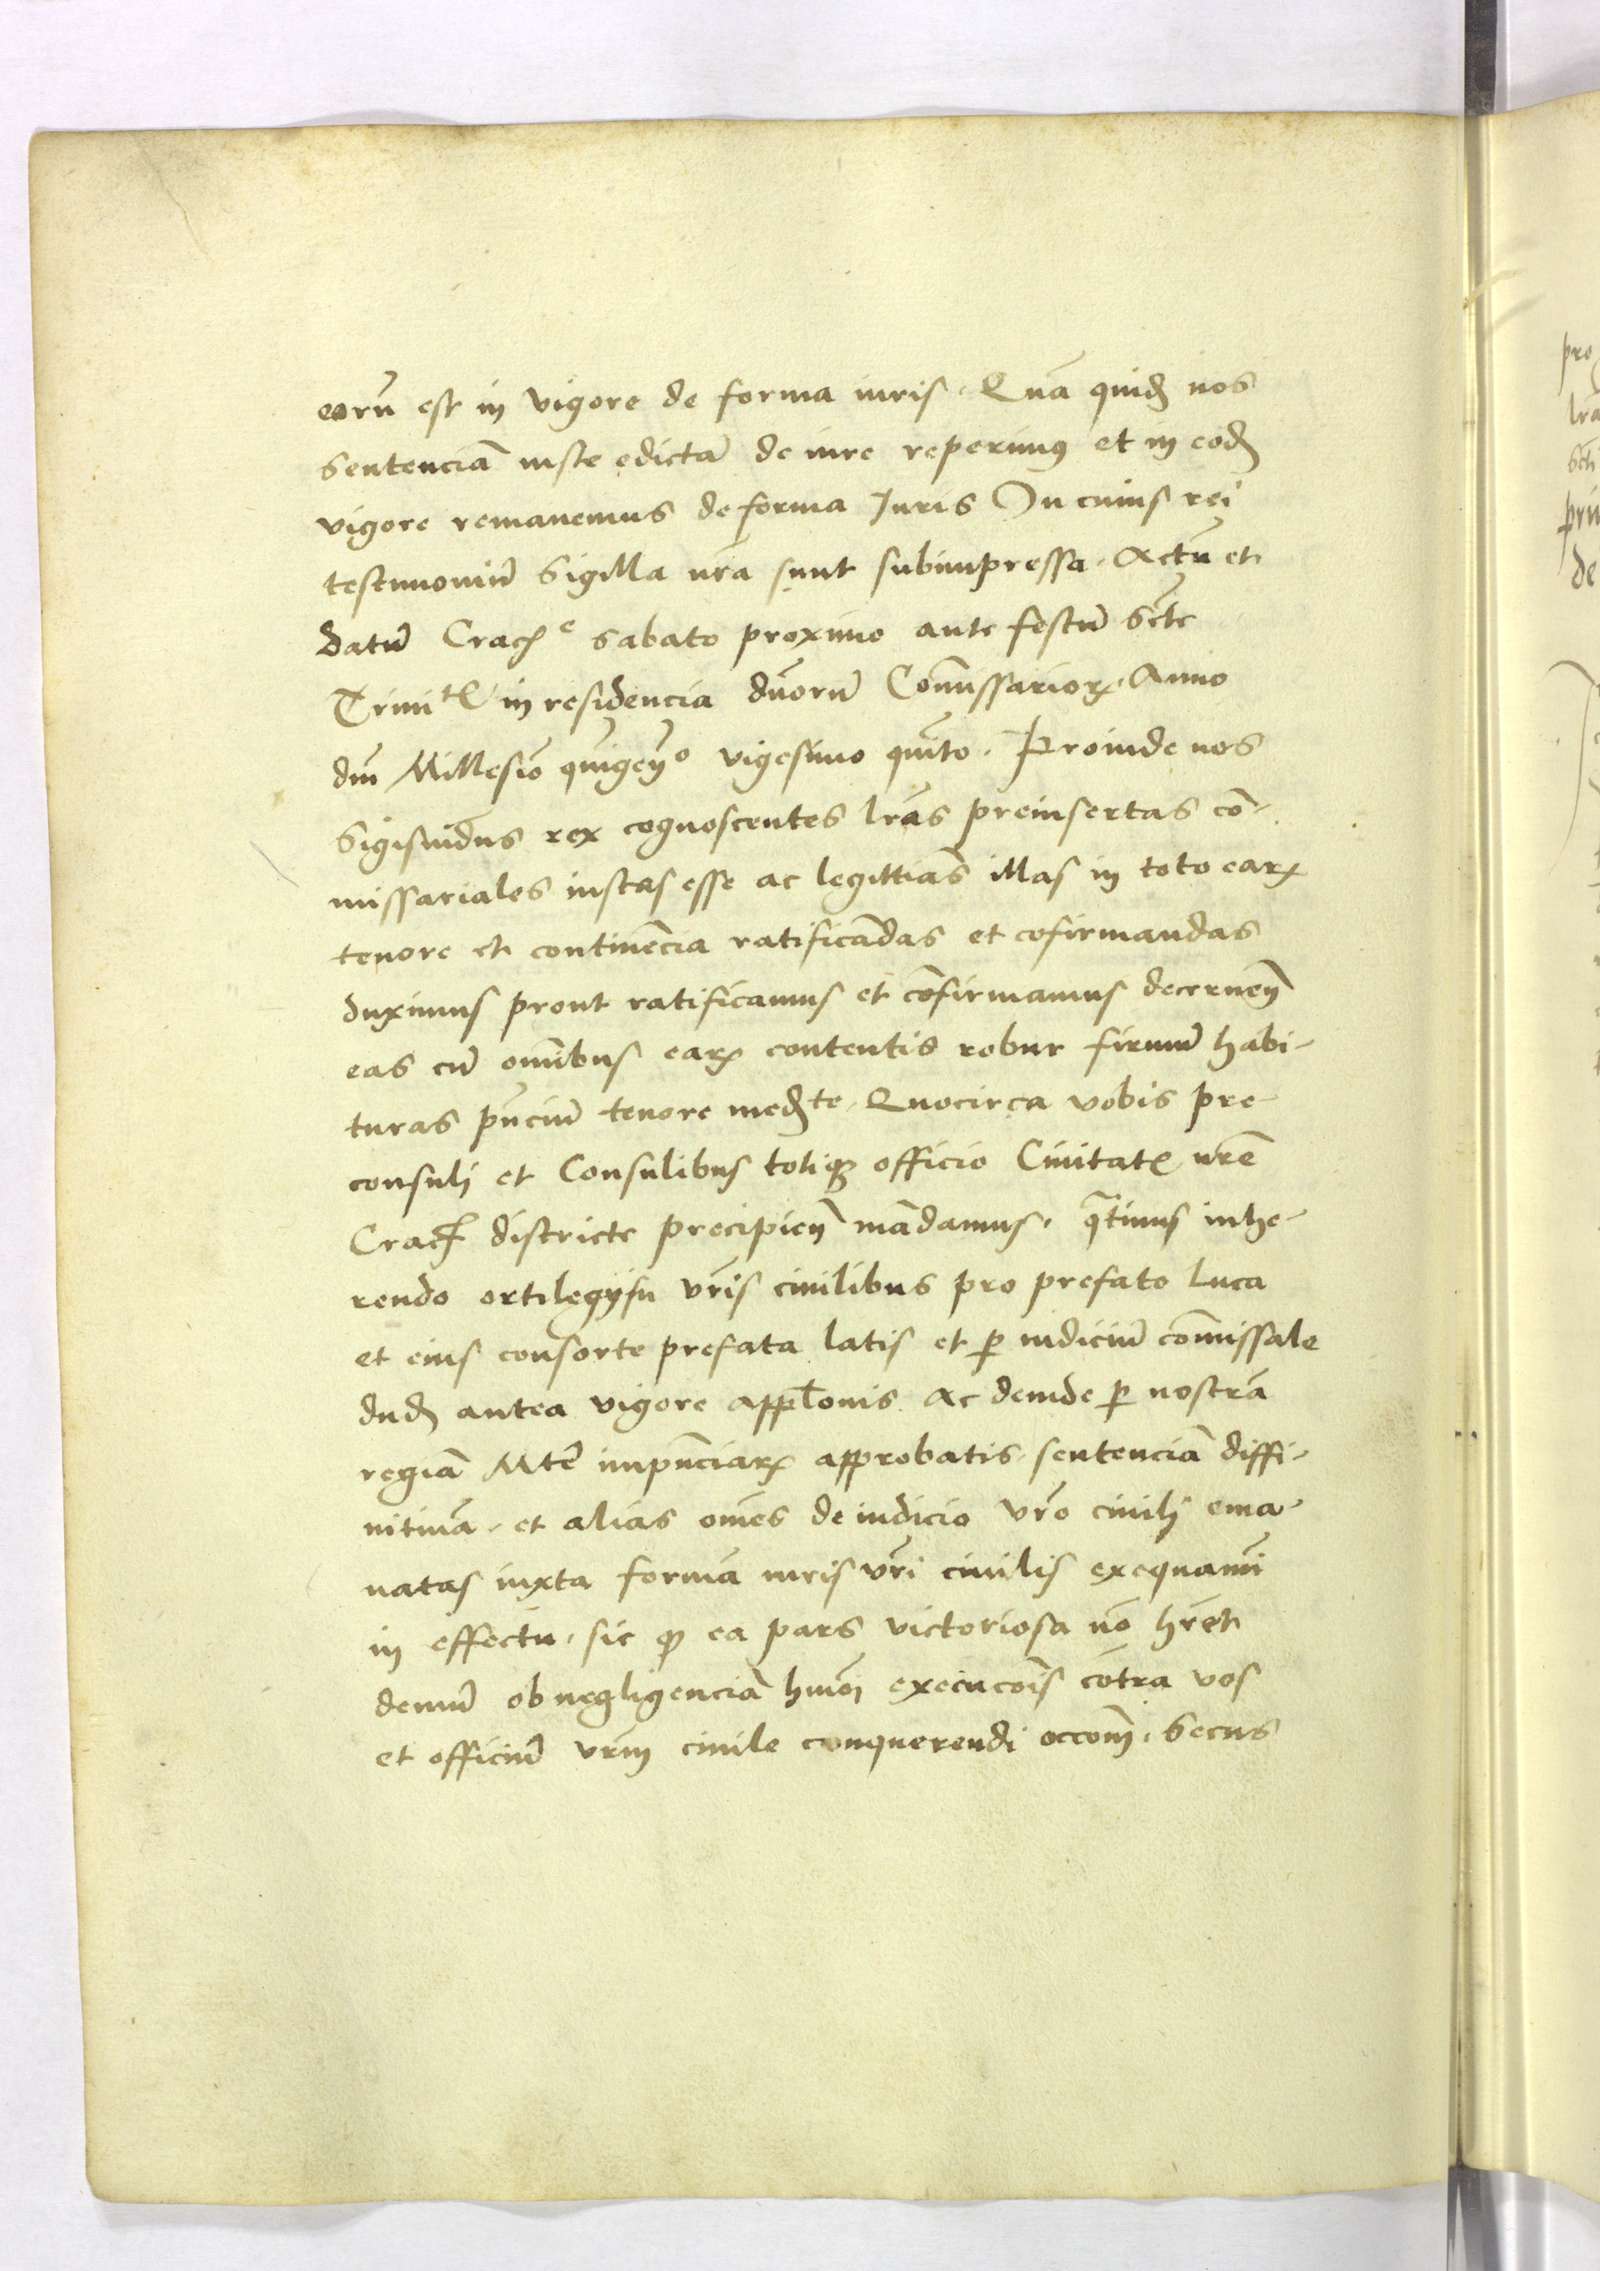 eorū est in vigore de forma iuris. Quā quid̄ nos
sentenciā iuste edictā de iure reperimus et in eod̄
vigore remanemus de forma Juris In cuius rei
testimoniū Sigilla nr̄a sunt subimpressa. Actū et
datū Crac̄ᵉ sabato proximo ante festū Sctē
Trinitᵗˢ in residencia duorū Com̄issarioꝝ. Anno
dn̄i Millesīo quīgen̄º vigesimo quīto. Proinde nos
Sigismūdus rex cognoscentes lr̄as preinsertas cō-
missariales iustas esse ac legittīas illas in toto eaꝝ
tenore et continēcia ratificādas et cōfirmandas
duximus prout ratificamus et cōfirmamus decernen̄
eas cū om̄ibus eaꝝ contentis robur firmū habi-
turas pn̄ciū tenore med̄te. Quocirca vobis pre-
consuli et Consulibus totiqꝫ officio Civitatꝭ nr̄e
Crac̄ districte precipien̄ mādamus. qᵃtinus inhe-
rendo ortilegijsu vr̄is ciuilibus pro prefato Luca
et eius consorte prefata latis et ꝑ iudiciū com̄issale
dud̄ antea vigore appl̄onis Ac deinde ꝑ nostrā
regiā Mtē impn̄ciaꝝ approbatis. sentenciā diffi-
nitiuā. et alias om̄es de iudicio vr̄o ciuili ema-
natas iuxta formā iuris vr̄i ciuilis exequamī
in effectu. sic qꝫ ea pars victoriosa nō hr̄et
demū ob negligenciā hm̄oi execucōis cōtra vos
et officiū vr̄m ciuile conquerendi occom̄. Secus
pro
lra
de